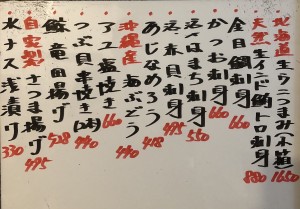 北海道生ウニつまみ木箱 1650
天然生インド鮪トロ刺身 880
金目鯛刺身 660
かつお刺身 660
活〆はまち刺身 550
活赤貝刺身 495
あじなめろう 418
沖縄産海ぶどう 440
アユ塩焼き 660
つぶ貝串焼き(2本) 440
鯨竜田揚げ 528
自家製さつま揚げ 495
水ナス浅漬け 330